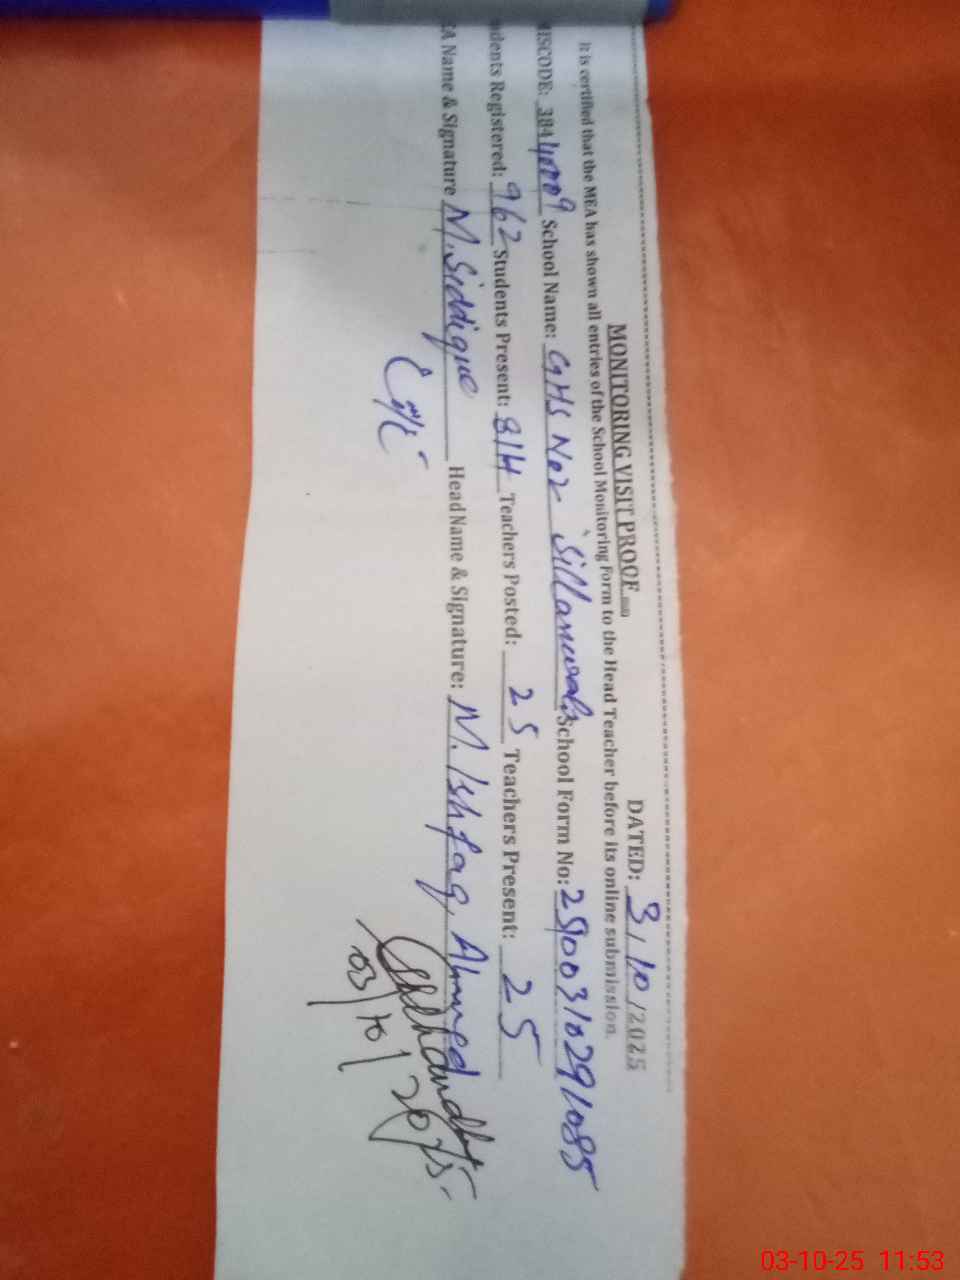 MONITORING VISIT PROOF
DATED: 3/10/2025
It is certified that the MEA has shown all entries of the School Monitoring Form to the Head Teacher before its online submission.
MISCODE: 38440009 School Name: GHS No2 Sillanwali School Form No: 25100310291085
udents Registered: 962 Students Present: 814 Teachers Posted: 25 Teachers Present: 25
EA Name & Signature M. Siddique Head Name & Signature: M. Ishfaq Ahmed
03/10/2025
03-10-25 11:53